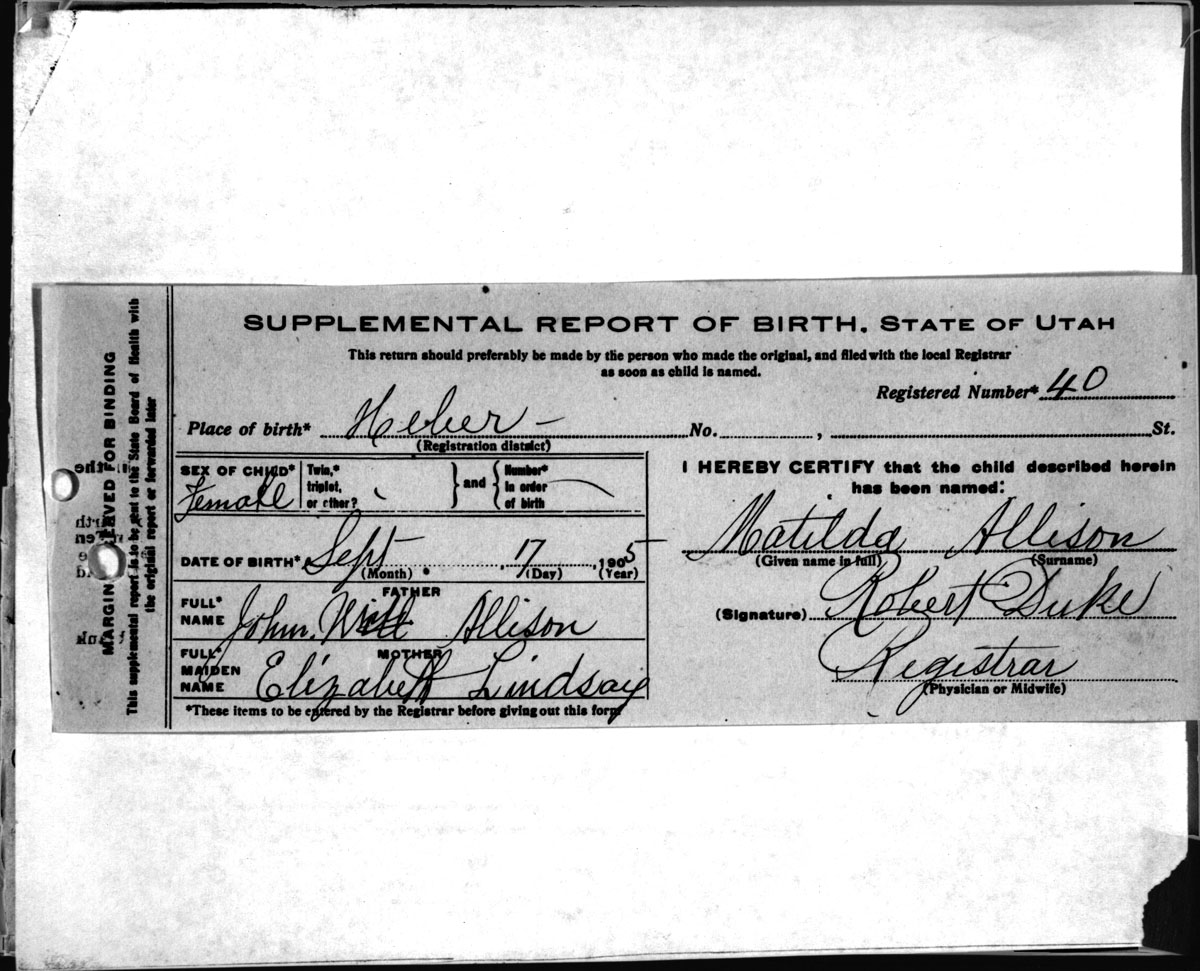 SUPPLEMENTAL REPORT OF BIRTH. STATE OF UTAH
This return should preferably be made by the person who made the original, and filed with the local Registrar
as soon as child is named.
Registered Number* 40
Place of birth* Heber - No. , St.
(Registration district)
SEX OF CHILD* Female
Twin,* triplet, or other? } and { Number* in order of birth
DATE OF BIRTH* Sept 17 1905
(Month) (Day) (Year)
FATHER
FULL* NAME John Allison
MOTHER
FULL* MAIDEN NAME Elizabeth Lindsay
*These items to be entered by the Registrar before giving out this form
I HEREBY CERTIFY that the child described herein
has been named:
Matilda Allison
(Given name in full) (Surname)
(Signature) Robert Duke
Registrar
(Physician or Midwife)
MARGIN RESERVED FOR BINDING
This supplemental report is to be sent to the State Board of Health with
the original report or forwarded later